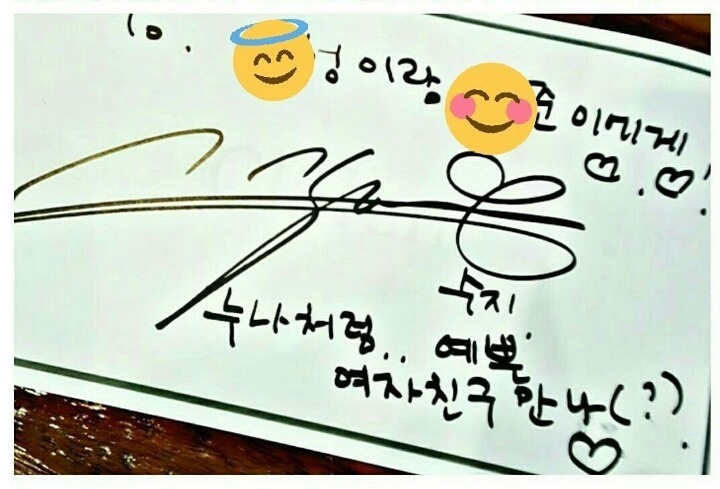 To.
이랑 이에게 ♡.♡!
수지
누나처럼.. 예쁜
여자친구 만나(?).
♡